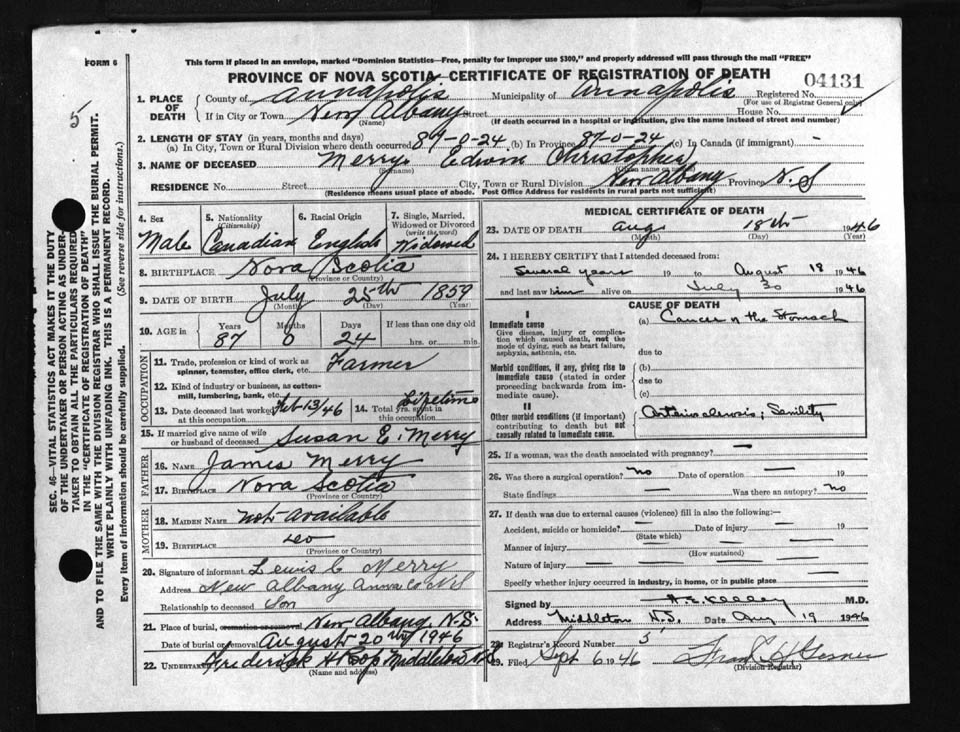 FORM 6
This form if placed in an envelope, marked "Dominion Statistics—Free, penalty for improper use $300," and properly addressed will pass through the mail "FREE"
PROVINCE OF NOVA SCOTIA CERTIFICATE OF REGISTRATION OF DEATH
04131
5
SEC. 46—VITAL STATISTICS ACT MAKES IT THE DUTY
OF THE UNDERTAKER OR PERSON ACTING AS UNDER-
TAKER TO OBTAIN ALL THE PARTICULARS REQUIRED
IN THE "CERTIFICATE OF REGISTRATION OF DEATH"
AND TO FILE THE SAME WITH THE DIVISION REGISTRAR WHO SHALL ISSUE THE BURIAL PERMIT.
WRITE PLAINLY WITH UNFADING INK. THIS IS A PERMANENT RECORD.
Every item of information should be carefully supplied. (See reverse side for instructions.)
1. PLACE OF DEATH
County of Annapolis Municipality of Annapolis Registered No.
(For use of Registrar General only)
If in City or Town New Albany Street House No.
(Name) (If death occurred in a hospital or institution, give the name instead of street and number)
2. LENGTH OF STAY (in years, months and days)
(a) In City, Town or Rural Division where death occurred 87-0-24 (b) In Province 87-0-24 (c) In Canada (if immigrant) -
3. NAME OF DECEASED Merry Edwin Christopher
(Surname)
RESIDENCE No. Street City, Town or Rural Division New Albany Province N.S
(Residence means usual place of abode. Post Office Address for residents in rural parts not sufficient)
4. Sex Male
5. Nationality (Citizenship) Canadian
6. Racial Origin English
7. Single, Married, Widowed or Divorced (write the word) Widowed
8. BIRTHPLACE Nova Scotia
(Province or Country)
9. DATE OF BIRTH July 25th 1859
(Month) (Day) (Year)
10. AGE in Years 87 Months 0 Days 24 If less than one day old hrs. or min.
OCCUPATION
11. Trade, profession or kind of work as spinner, teamster, office clerk, etc. Farmer
12. Kind of industry or business, as cotton-mill, lumbering, bank, etc.
13. Date deceased last worked at this occupation Feb 13/46
14. Total yrs. spent in this occupation Lifetime
15. If married give name of wife or husband of deceased Susan E. Merry
FATHER
16. NAME James Merry
17. BIRTHPLACE Nova Scotia
(Province or Country)
MOTHER
18. MAIDEN NAME not available
19. BIRTHPLACE
(Province or Country)
20. Signature of informant Lewis C Merry
Address New Albany Anna Co N.S
Relationship to deceased Son
21. Place of burial, cremation or removal New Albany N.S.
Date of burial or removal August 20th 1946
22. UNDERTAKER Frederick A Roop Middleton N.S
(Name and address)
MEDICAL CERTIFICATE OF DEATH
23. DATE OF DEATH Aug 18th 1946
(Month) (Day) (Year)
24. I HEREBY CERTIFY that I attended deceased from:
several years 19 to August 18 1946
and last saw him alive on July 30 1946
CAUSE OF DEATH
I
Immediate cause
Give disease, injury or complication which caused death, not the mode of dying, such as heart failure, asphyxia, asthenia, etc.
(a) Cancer of the Stomach
due to
Morbid conditions, if any, giving rise to immediate cause (stated in order proceeding backwards from immediate cause).
(b)
due to
(c)
II
Other morbid conditions (if important) contributing to death but not causally related to immediate cause.
Arteriosclerosis; Senility
25. If a woman, was the death associated with pregnancy? —
26. Was there a surgical operation? no Date of operation — 19
State findings — Was there an autopsy? no
27. If death was due to external causes (violence) fill in also the following:—
Accident, suicide or homicide? — Date of injury — 19
(State which)
Manner of injury —
(How sustained)
Nature of injury —
Specify whether injury occurred in industry, in home, or in public place —
Signed by M.D.
Address Middleton N.S. Date Aug 19 1946
28. Registrar's Record Number 5
29. Filed Sept 6 1946
(Division Registrar)